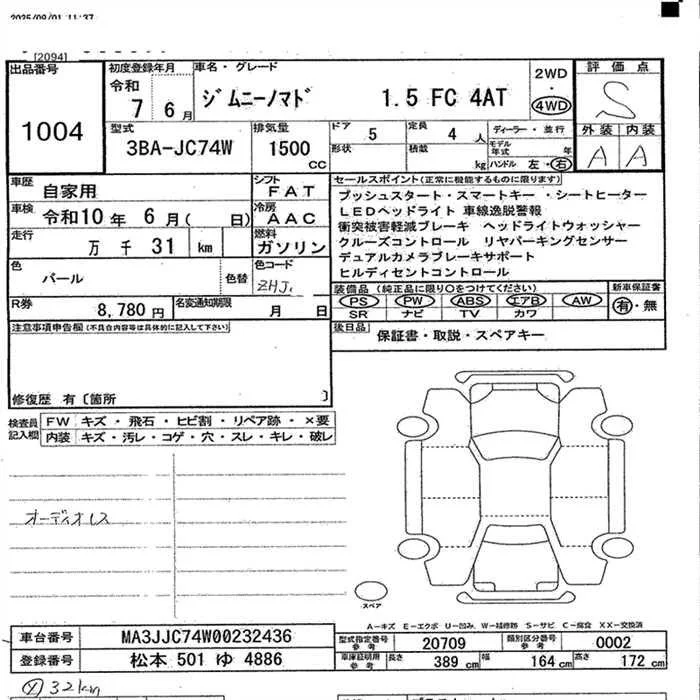 2025/09/01 11:37
[2094]
出品番号
1004
初度登録年月
令和
7 6月
車名・グレード
ジムニーノマド 1.5 FC 4AT
2WD
・
4WD
評価点
S
外装 内装
A A
型式
3BA-JC74W
排気量
1500
CC
ドア 5
形状
定員 4 人
積載 kg
ディーラー・並行
モデル年式 年
ハンドル 左・右
車歴 自家用
シフト FAT
車検 令和10年 6月( 日)
冷房 AAC
走行 万 千 31 km
燃料 ガソリン
色 パール
色替
色コード ZHJ
R券 8,780 円
名変通知期限 月 日
セールスポイント(正常に機能するものに限ります)
プッシュスタート・スマートキー・シートヒーター
LEDヘッドライト 車線逸脱警報
衝突被害軽減ブレーキ ヘッドライトウォッシャー
クルーズコントロール リヤパーキングセンサー
デュアルカメラブレーキサポート
ヒルディセントコントロール
装備品(純正品に限り○をつけてください)
新車保証書
PS PW ABS エアB AW
SR ナビ TV カワ
有・無
後日品
保証書・取説・スペアキー
注意事項申告欄(不具合内容等は具体的に記入して下さい)
修復歴 有〔箇所 〕
検査員記入欄
FW キズ・飛石・ヒビ割・リペア跡・×要
内装 キズ・汚レ・コゲ・穴・スレ・キレ・破レ
オーディオレス
スペア
A-キズ E-エクボ U-凹み W-補修跡 S-サビ C-腐食 XX-交換済
車台番号 MA3JJC74W00232436
登録番号 松本 501 ゆ 4886
型式指定番号参考 20709
類別区分番号参考 0002
車庫証明用参考 長さ 389 cm 幅 164 cm 高さ 172 cm
メ 32km